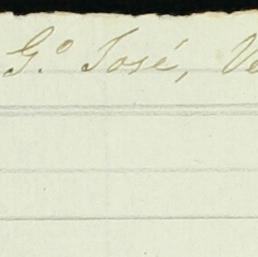 G.º José, Ve